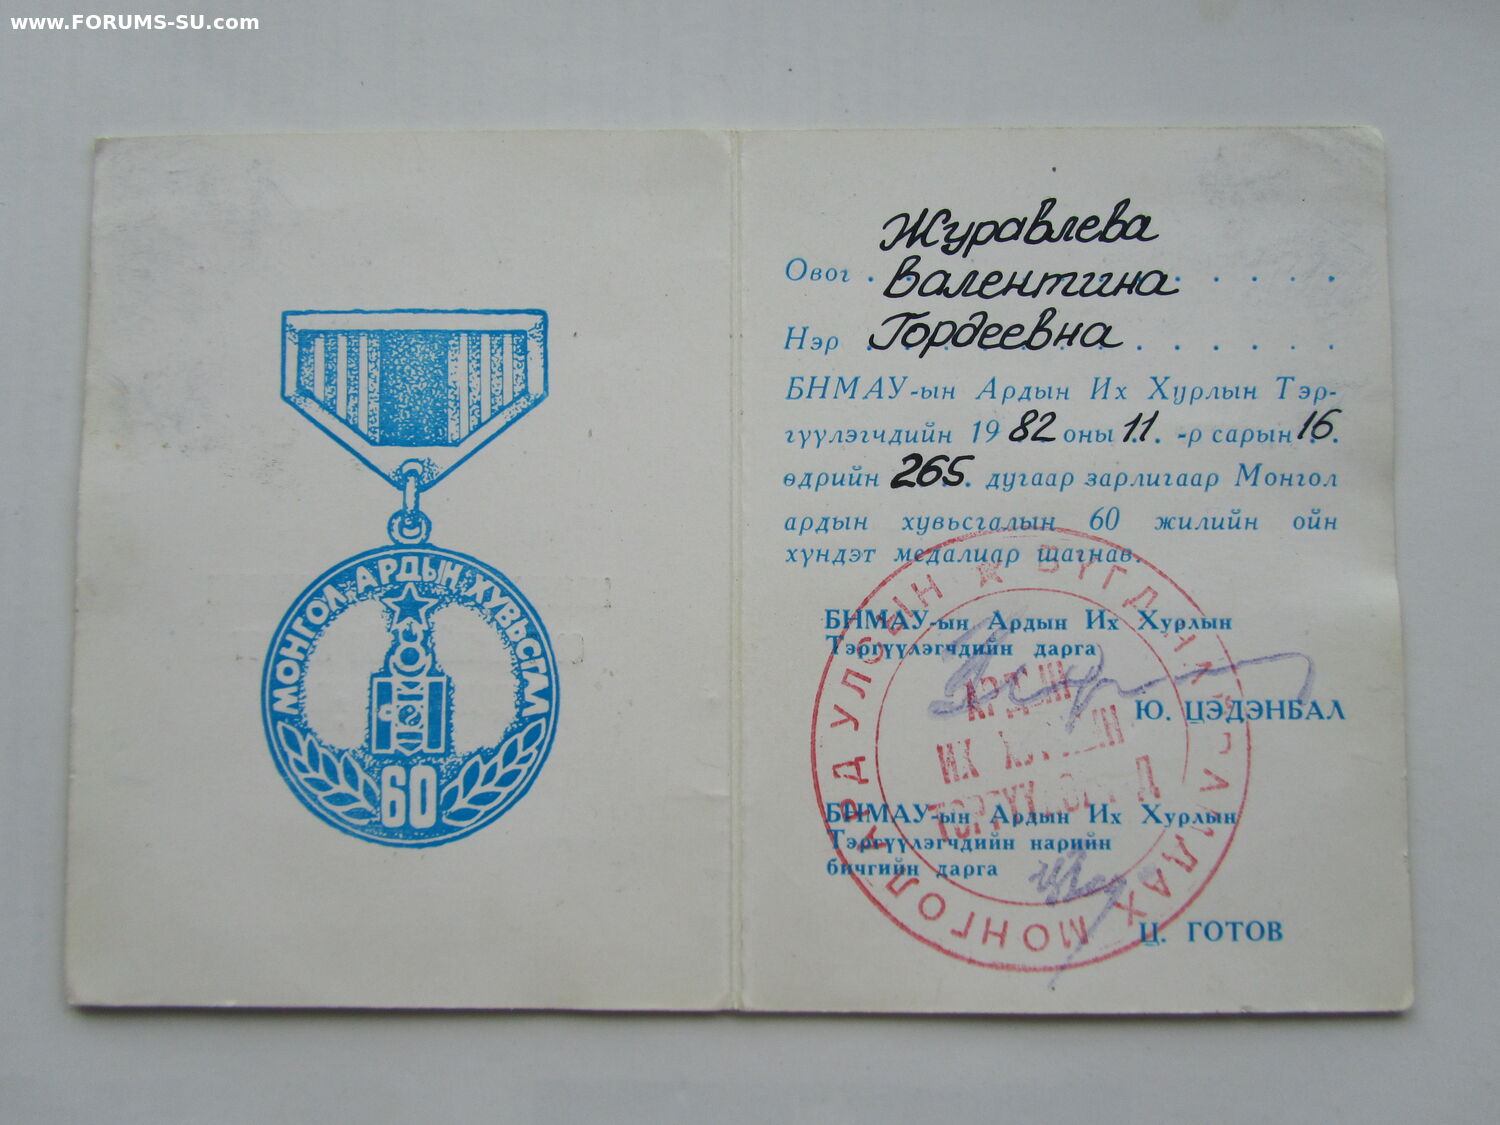 www.FORUMS-SU.com
МОНГОЛ АРДЫН ХУВЬСГАЛ
60
Журавлева
Овог . Валентина . . . . .
Нэр . Гордеевна . . . . . .
БНМАУ-ын Ардын Их Хурлын Тэр-
гүүлэгчдийн 1982 оны 11. -р сарын 16
өдрийн 265. дугаар зарлигаар Монгол
ардын хувьсгалын 60 жилийн ойн
хүндэт медалиар шагнав.
БНМАУ-ын Ардын Их Хурлын
Тэргүүлэгчдийн дарга
Ю. ЦЭДЭНБАЛ
БНМАУ-ын Ардын Их Хурлын
Тэргүүлэгчдийн нарийн
бичгийн дарга
Ц. ГОТОВ
БҮГД НАЙРАМДАХ МОНГОЛ АРД УЛСЫН
АРДЫН
ИХ